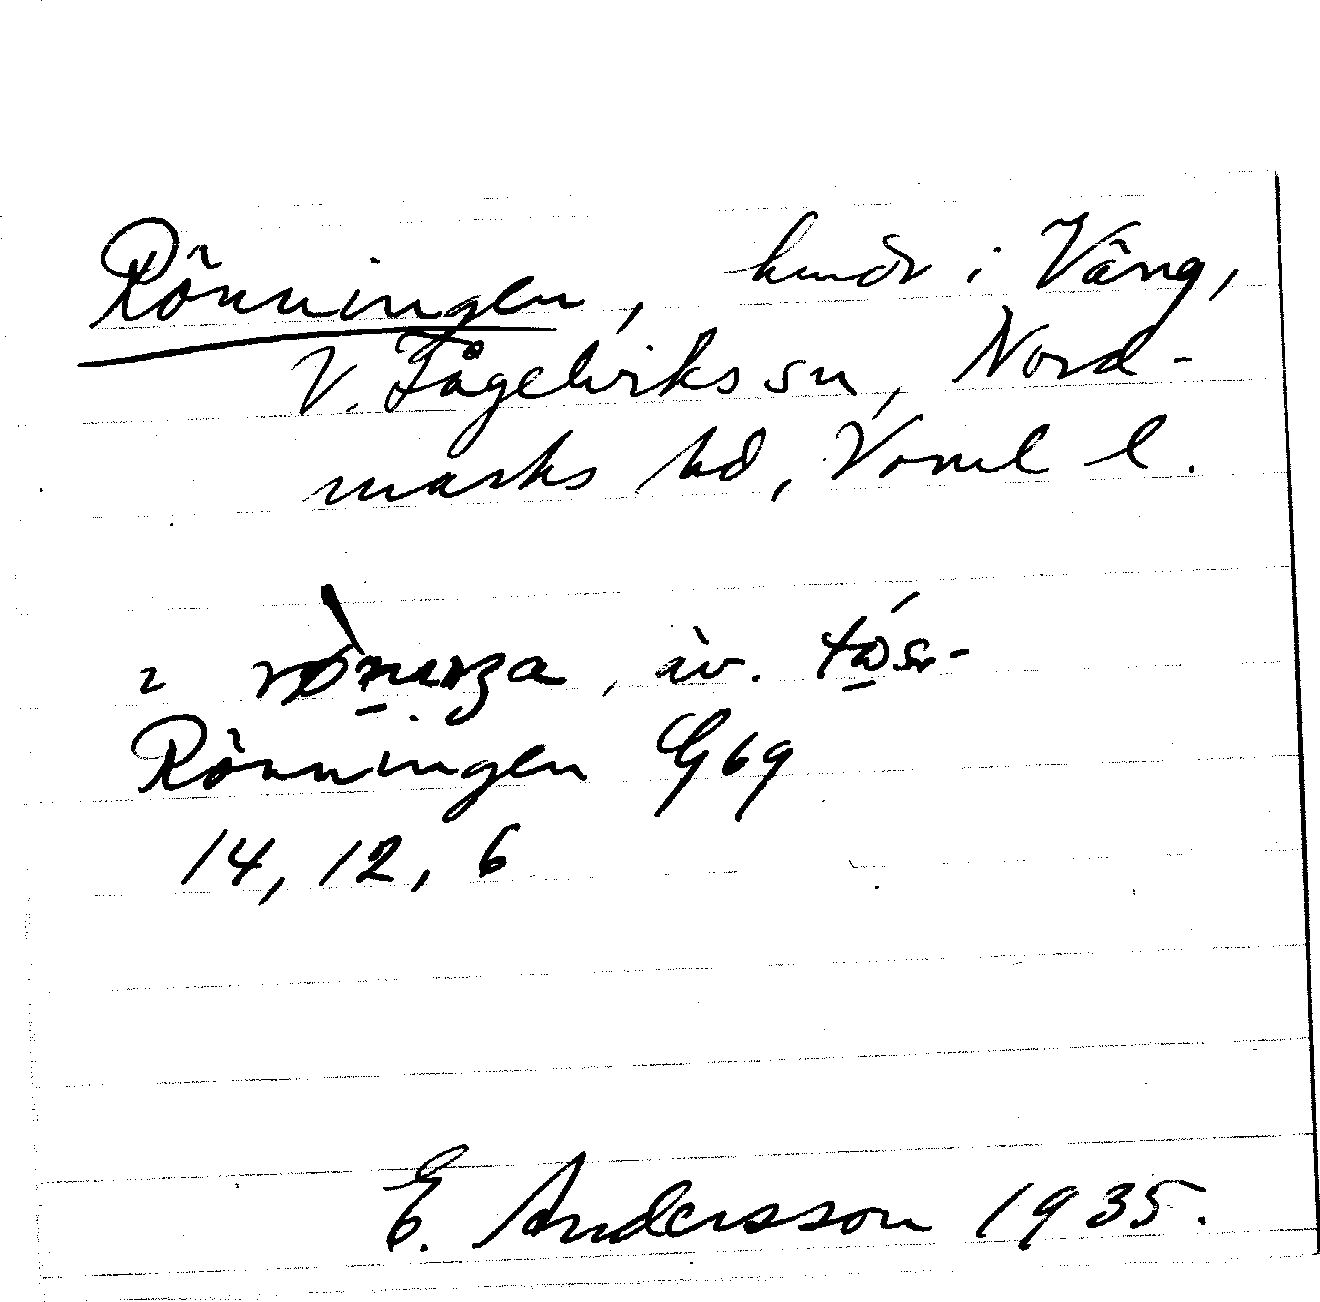 Rönningen, hmdr i Vång,
V. Fågelviks sn, Nord-
marks hd, Vorml l.
i rönıŋa, äv. tås-
Rönningen G69
14, 12, 6
E. Andersson 1935.